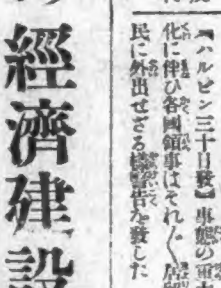 【ハルビン三十日發】事態の重大
化に伴ひ各國領事はそれ〲居留
民に外出せざる樣警告を發した
經濟建設